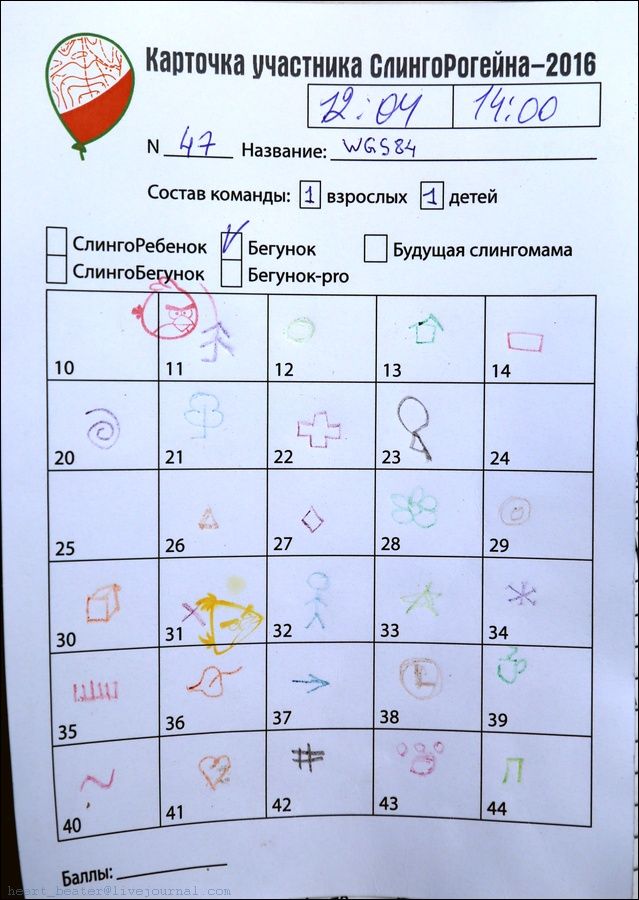 Карточка участника СлингоРогейна–2016
12:04 14:00
N 47 Название: WGS84
Состав команды: 1 взрослых 1 детей
СлингоРебенок V Бегунок Будущая слингомама
СлингоБегунок Бегунок-pro
10 11 12 13 14
20 21 22 23 24
25 26 27 28 29
30 31 32 33 34
35 36 37 38 39
40 41 42 43 44
Баллы:
heart_beater@livejournal.com